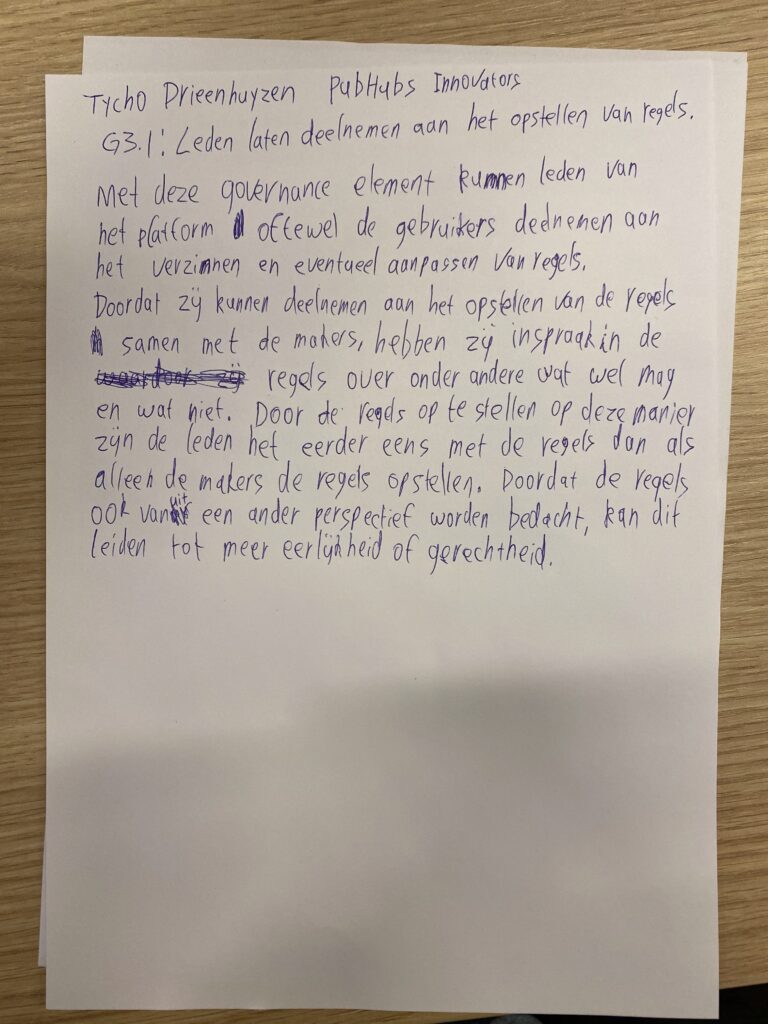 Tycho Drieenhuyzen PubHubs Innovators
G3.1: Leden laten deelnemen aan het opstellen van regels.
Met deze governance element kunnen leden van
het platform oftewel de gebruikers deelnemen aan
het verzinnen en eventueel aanpassen van regels.
Doordat zij kunnen deelnemen aan het opstellen van de regels
samen met de makers, hebben zij inspraak in de
regels over onder andere wat wel mag
en wat niet. Door de regels op te stellen op deze manier
zijn de leden het eerder eens met de regels dan als
alleen de makers de regels opstellen. Doordat de regels
ook vanuit een ander perspectief worden bedacht, kan dit
leiden tot meer eerlijkheid of gerechtheid.